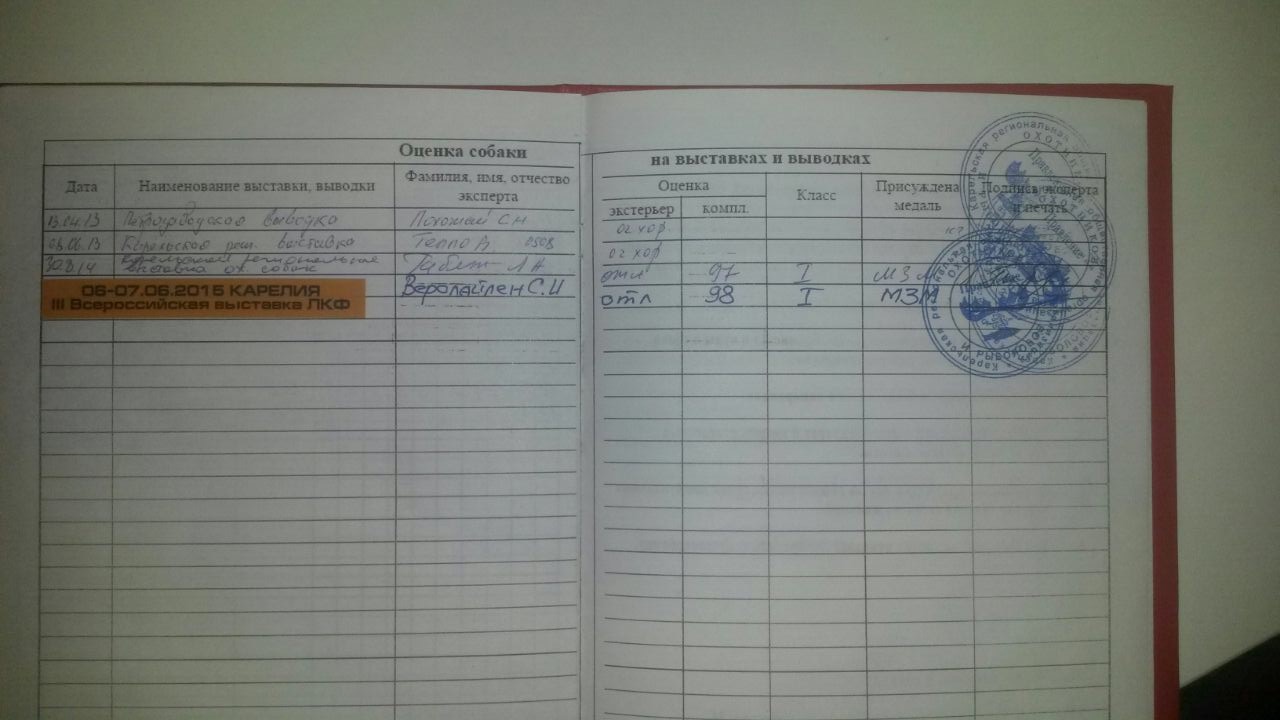 Оценка собаки на выставках и выводках
Дата Наименование выставки, выводки Фамилия, имя, отчество эксперта Оценка экстерьер компл. Класс Присуждена медаль Подпись эксперта и печать
13.04.13 выводка С.Н. оч хор
08.06.13 Карельская выставка Теппо В. 0508 оч хор
30.8.14 Карельская региональная
выставка ох. собак Л А отл 97 I МЗМ
06-07.06.2015 КАРЕЛИЯ
III Всероссийская выставка ЛКФ
Веролайлен С.И отл 98 I МЗМ
Карельская региональная
ОХОТНИКОВ
И РЫБОЛОВОВ
Правление